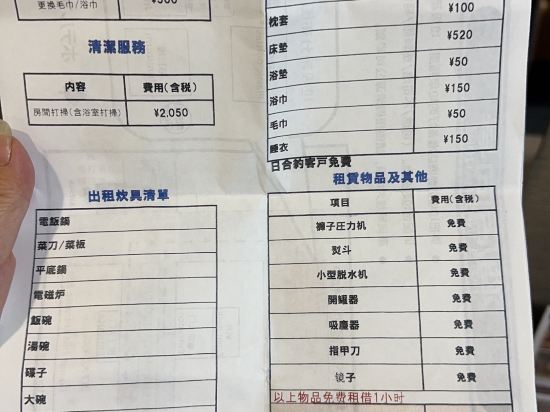 更換毛巾/浴巾
清潔服務
內容 費用(含税)
房間打掃(含浴室打掃) ¥2,050
出租炊具清單
電飯鍋
菜刀/菜板
平底鍋
電磁炉
飯碗
湯碗
碟子
大碗
枕套 ¥100
床墊 ¥520
浴墊 ¥50
浴巾 ¥150
毛巾 ¥50
睡衣 ¥150
日合約客戸免費
租賃物品及其他
項目 費用(含税)
褲子圧力机 免費
熨斗 免費
小型脱水机 免費
開罐器 免費
吸塵器 免費
指甲刀 免費
镜子 免費
以上物品免费租借1小时